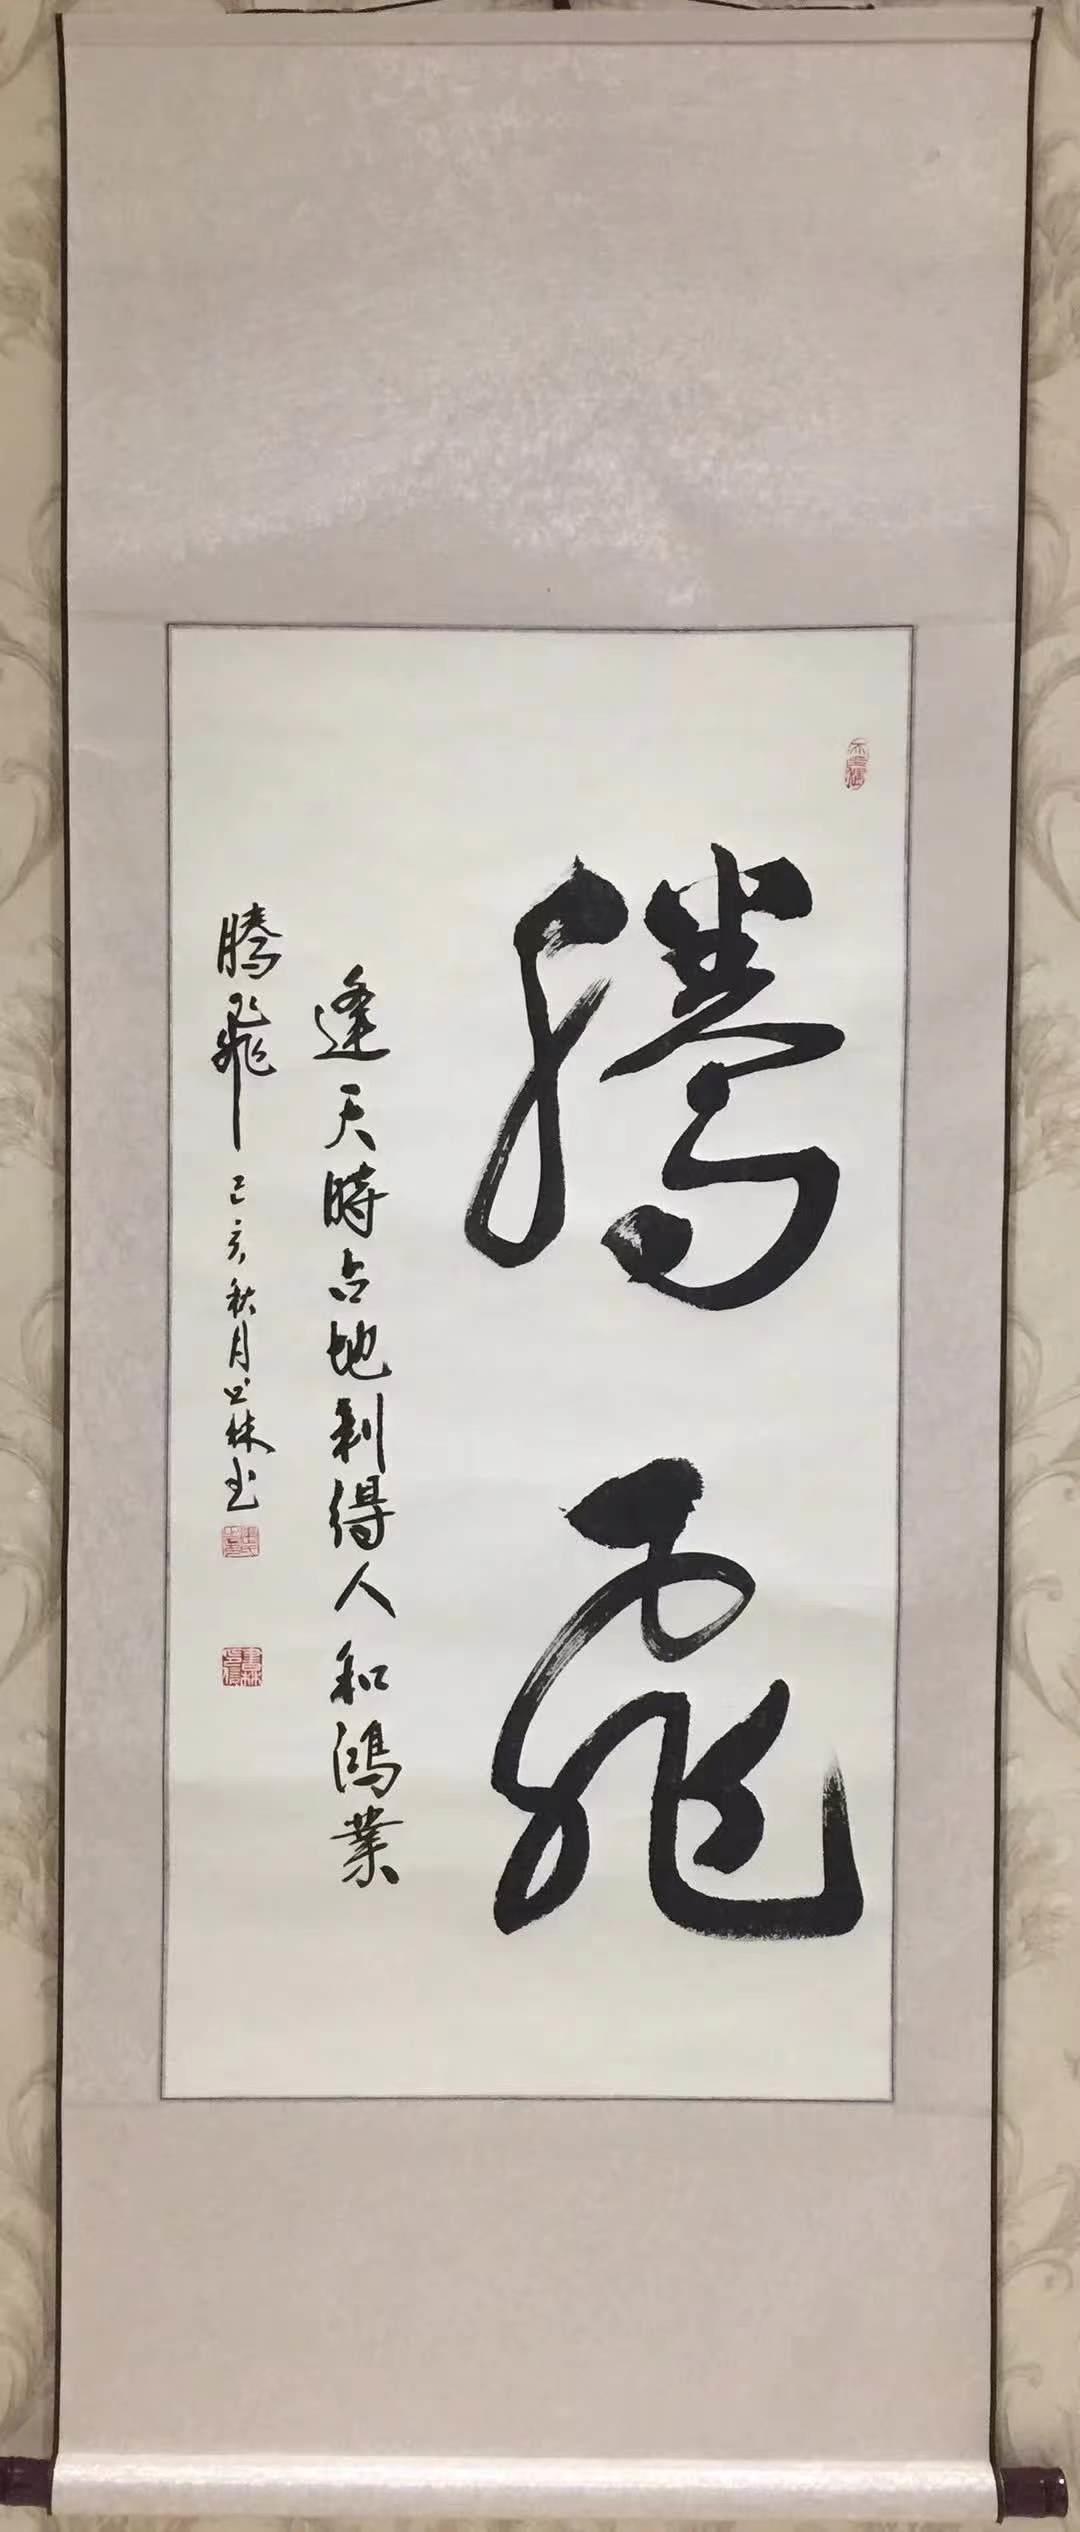 騰飛
逢天時占地利得人和鴻業
騰飛己亥秋月书林书